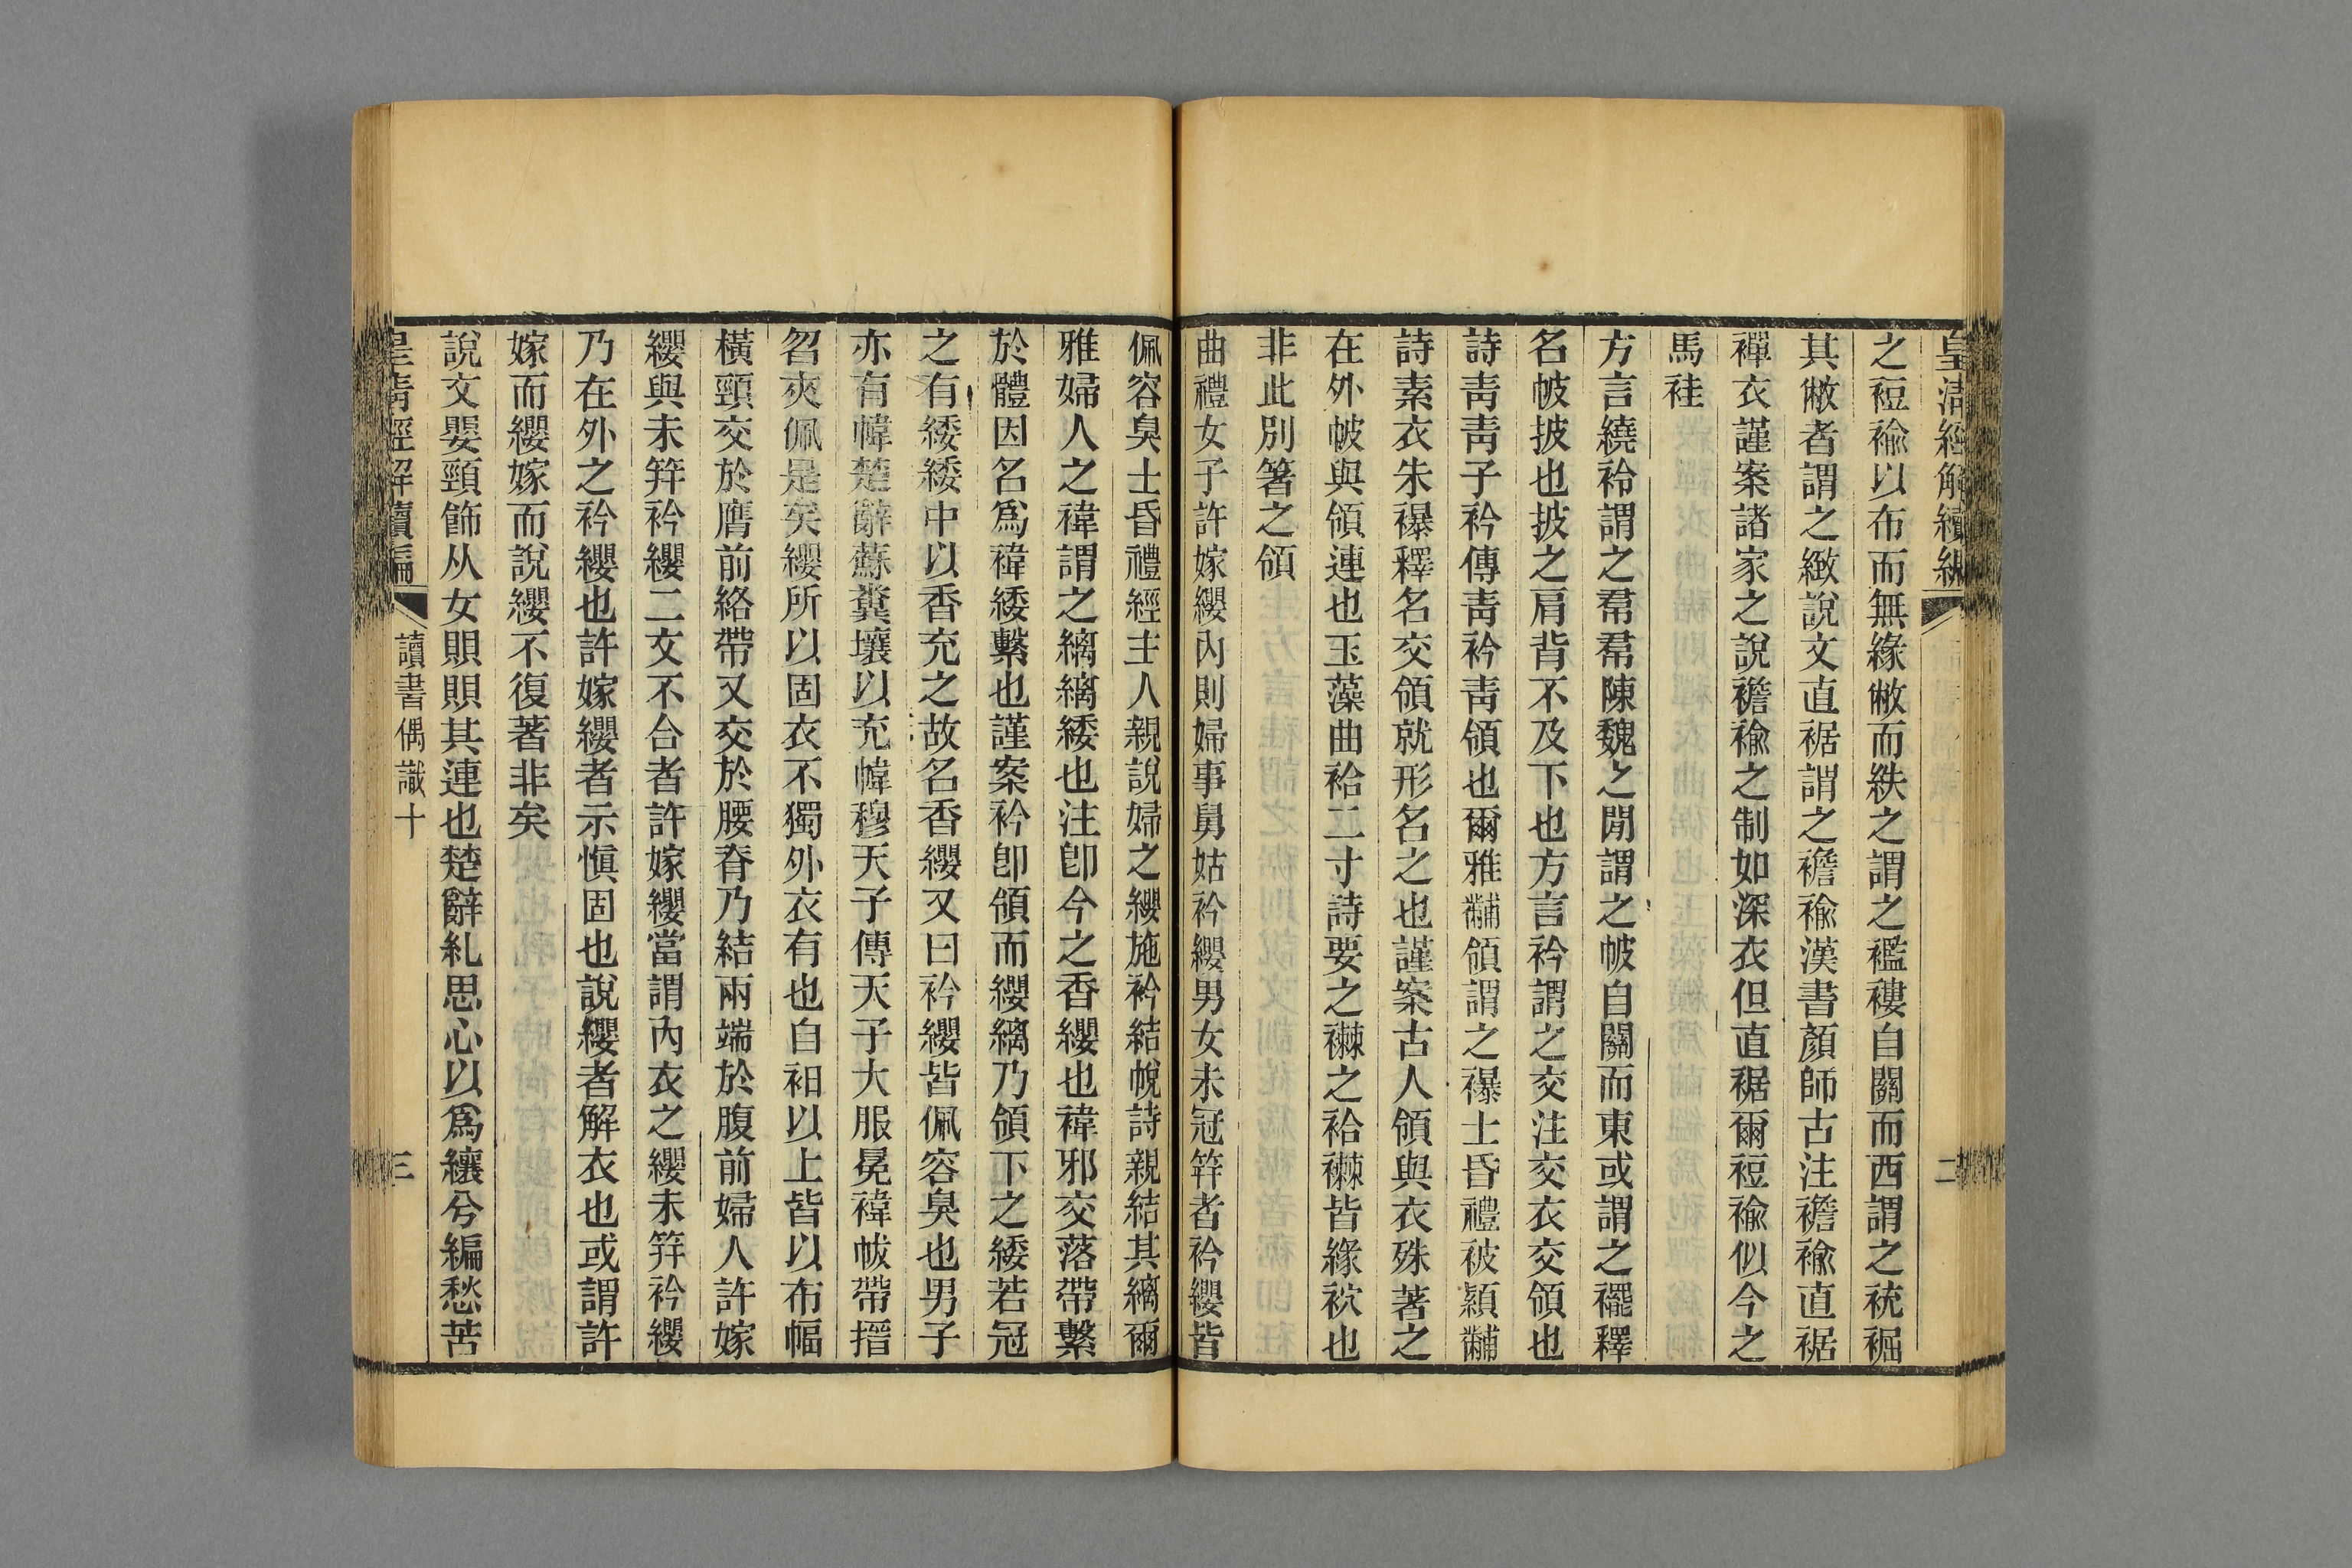 皇清經解續編
二
之裋褕以布而無緣敝而紩之謂之襤褸自關而西謂之裗裾
其敝者謂之緻說文直裾謂之襜褕漢書顏師古注襜褕直裾
襌衣謹案諸家之說襜褕之制如深衣但直裾爾裋褕似今之
馬褂
方言繞衿謂之帬帬陳魏之閒謂之帔自關而東或謂之襬釋
名帔披也披之肩背不及下也方言衿謂之交注交衣交領也
詩靑靑子衿傳靑衿靑領也爾雅黼領謂之襮士昏禮被潁黼
詩素衣朱襮釋名交領就形名之也謹案古人領與衣殊著之
在外帔與領連也玉藻曲袷二寸詩要之襋之袷襋皆緣衸也
非此別箸之領
曲禮女子許嫁纓內則婦事舅姑衿纓男女未冠笄者衿纓皆
佩容臭士昏禮經主人親說婦之纓施衿結帨詩親結其縭爾
雅婦人之褘謂之縭縭緌也注卽今之香纓也褘邪交落帶繫
於體因名爲褘緌繫也謹案衿卽領而纓縭乃領下之緌若冠
之有緌緌中以香充之故名香纓又曰衿纓皆佩容臭也男子
亦有幃楚辭蘇糞壤以充幃穆天子傳天子大服冕褘帗帶搢
曶夾佩是矣纓所以固衣不獨外衣有也自衵以上皆以布幅
橫頸交於膺前絡帶又交於腰脊乃結兩端於腹前婦人許嫁
纓與未笄衿纓二文不合者許嫁纓當謂內衣之纓未笄衿纓
乃在外之衿纓也許嫁纓者示愼固也說纓者解衣也或謂許
嫁而纓嫁而說纓不復著非矣
說文嬰頸飾从女賏賏其連也楚辭糺思心以爲纕兮編愁苦
皇清經解續編
讀書偶識十
三